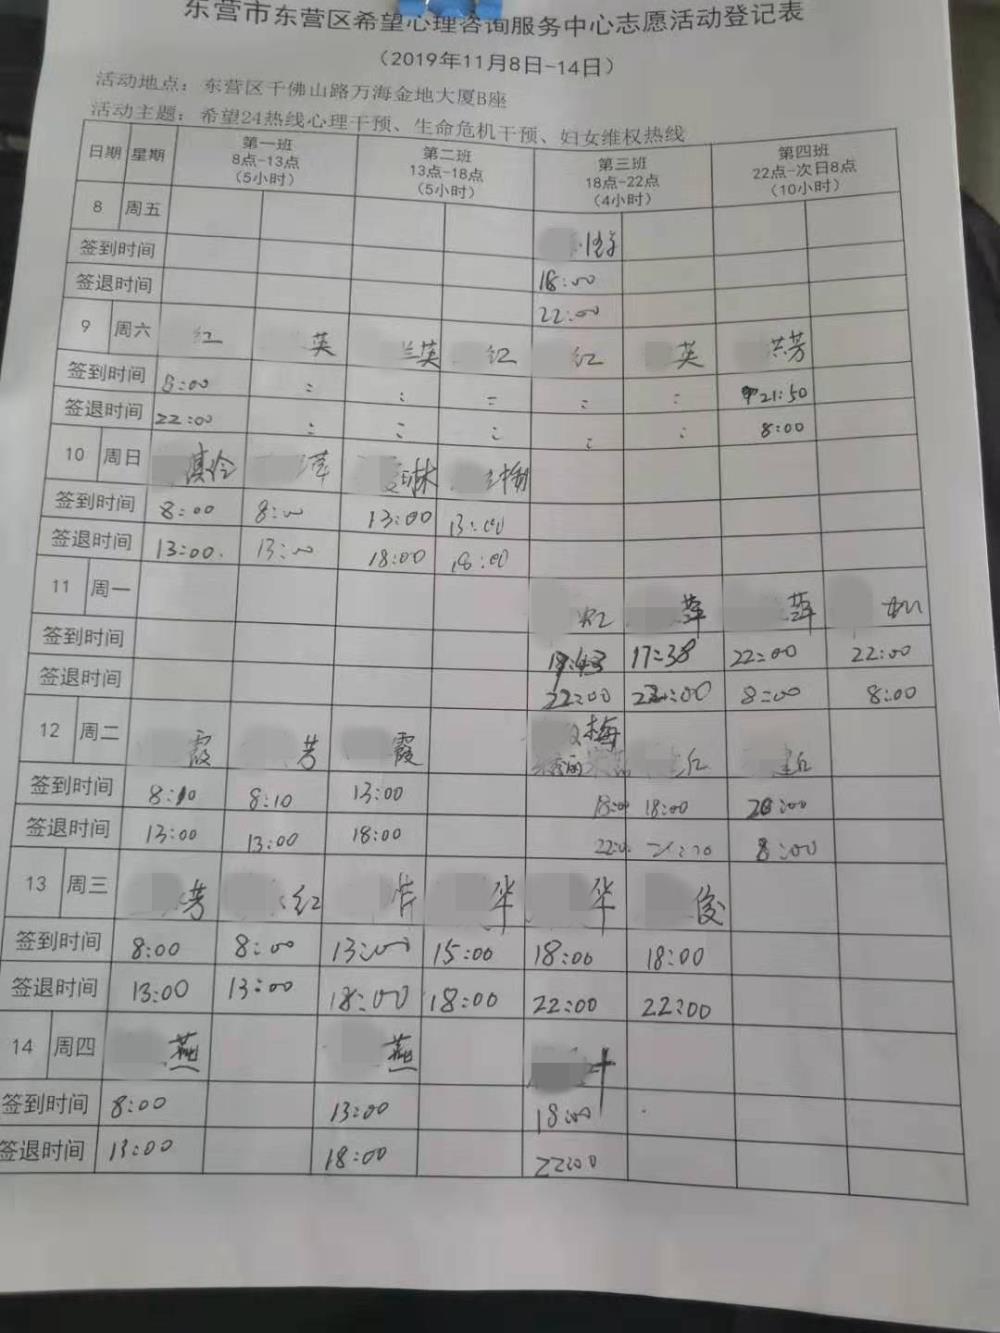 东营市东营区希望心理咨询服务中心志愿活动登记表
（2019年11月8日-14日）
活动地点：东营区千佛山路万海金地大厦B座
活动主题：希望24热线心理干预、生命危机干预、妇女维权热线
日期 星期 第一班 8点-13点 （5小时） 第二班 13点-18点 （5小时） 第三班 18点-22点 （4小时） 第四班 22点-次日8点 （10小时）
8 周五
签到时间 18:00
签退时间 22:00
9 周六 红 英 兰英 红 红 英 洪芳
签到时间 8:00 : : = : : 21:50
签退时间 22:00 : : : : : 8:00
10 周日 萍 琳
签到时间 8:00 8:00 13:00 13:00
签退时间 13:00. 13:00 18:00 18:00
11 周一 红 萍 萍
签到时间 17:38 22:00 22:00
签退时间 22:00 22:00 8:00 8:00
12 周二 霞 芳 霞 梅 红
签到时间 8:10 8:10 13:00 18:00 18:00
签退时间 13:00 13:00 18:00 8:00
13 周三 芳 红 华 华 俊
签到时间 8:00 8:00 13:00 15:00 18:00 18:00
签退时间 13:00 13:00 18:00 18:00 22:00 22:00
14 周四 燕 燕
签到时间 8:00 13:00 18:00
签退时间 13:00 18:00 22:00